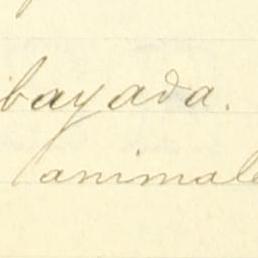 bayada.
animale